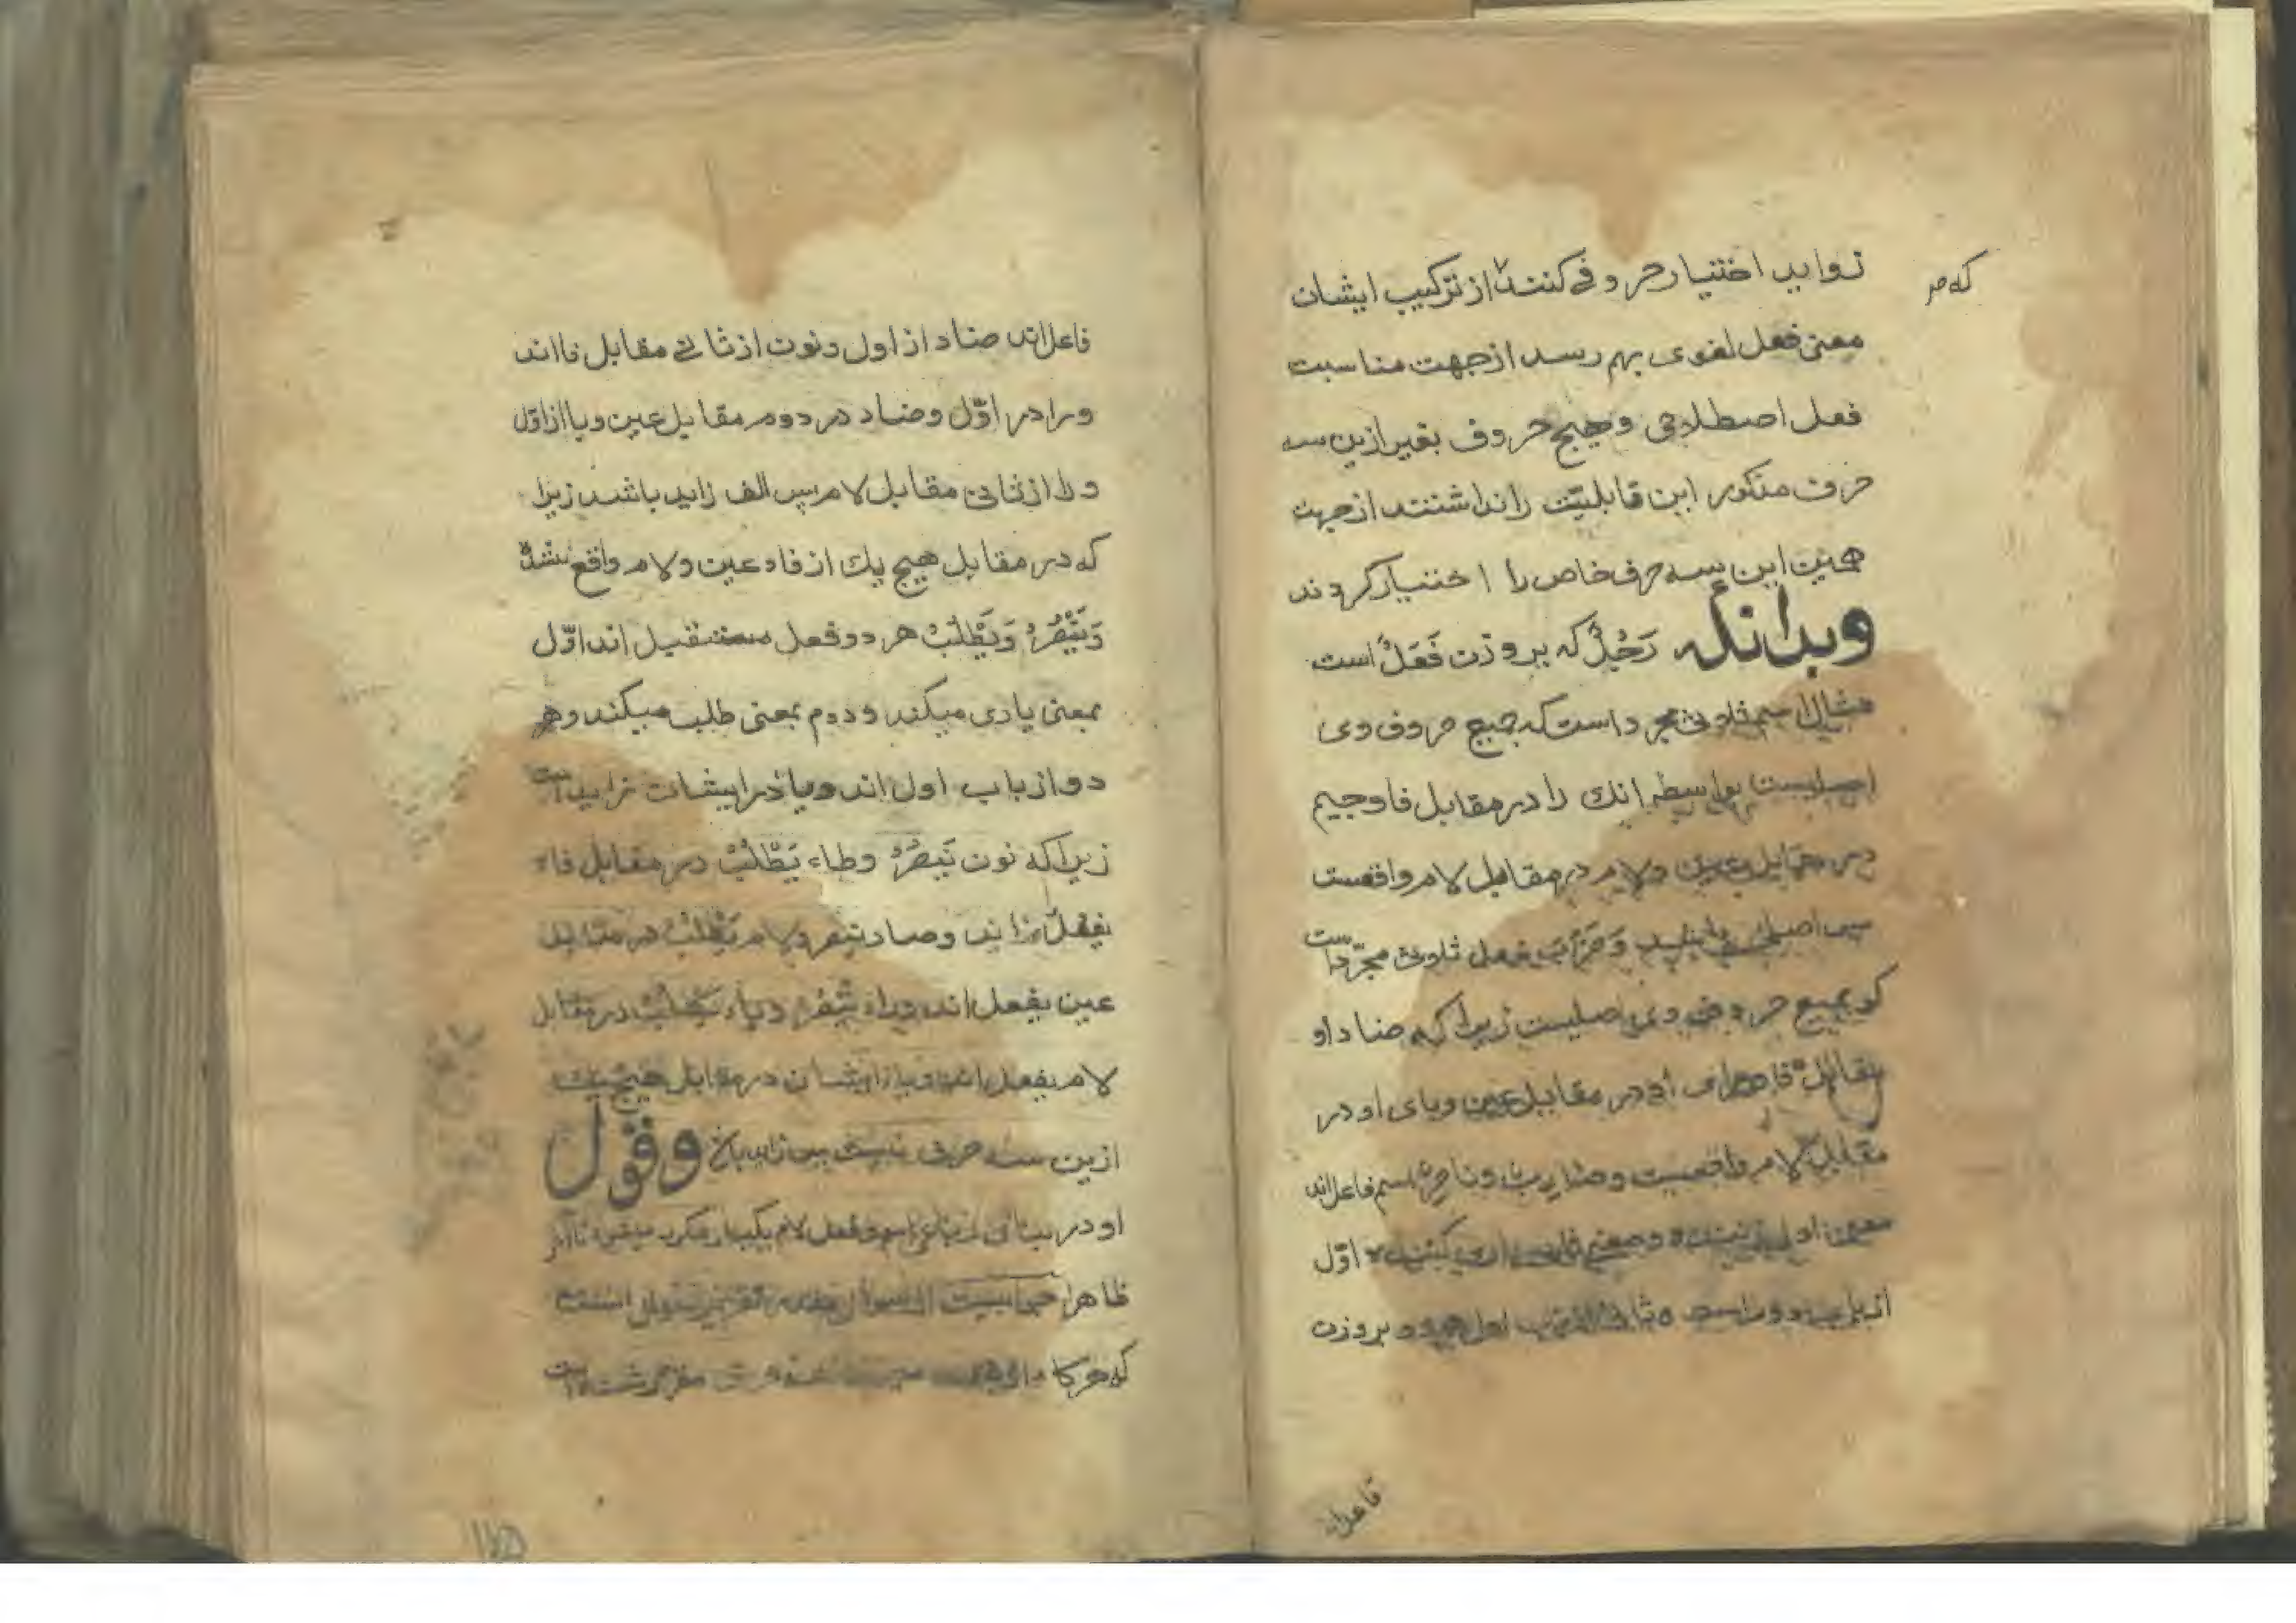 زواید اختیار حروفی کنند از ترکیب ایشان
که مر
معنی فعل لغوی بهم رسد از جهت مناسبت
فعل اصطلاحی و هیچ حروف بغیر ازین سه
حرف مذکور این قابلیّت را نداشتند از جهت
همین این سه حرف خاص را اختیار کردند
وبدانکه رَجُلٌ که بر وزن فَعَلٌ است
مثال اسم ثلاثی مجرد است که جمیع حروف وی
اصلیست بواسطه انک را در مقابل فا و جیم
در مقابل عین و لام در مقابل لام واقعست
پس اصلی باشد و ضَرَبَ فعل ثلاثی مجرّد است
که جمیع حروف وی اصلیست زیرا که ضاد او
بمقابل فا و رای او در مقابل عین و بای او در
مقابل لام واقعست و ضارب و ناصر اسم فاعل اند
معنی اول زننده و معنی یاری کننده اوّل
از باب دوم است و ثانی از باب اول هر دو بر وزن
فاعل اند
فاعل اند ضاد از اول و نون از ثانی مقابل فا اند
و را در اوّل و ضاد در دوم مقابل عین و با از اوّل
و را از ثانی مقابل لام پس الف زاید باشد زیرا
که در مقابل هیچ یک از فا و عین و لام واقع نشده
وَیَنْصُرُ وَیَطْلُبُ هر دو فعل مستقبل اند اوّل
بمعنی یاری میکند و دوم بمعنی طلب میکند و هر
دو از باب اول اند و یا در ایشان زاید است
زیرا که نون یَنصُرُ و طاء یَطْلُبُ در مقابل فاء
یفعل اند و صاد ینصر و لام یَطْلُبُ در مقابل
عین یفعل اند و راء یَنْصُرُ و باء یَطْلُبُ در مقابل
لام یفعل اند و یا از ایشان در مقابل هیچ یک
ازین سه حرف نیست پس زاید باشد وقول
او در رباعی اسم و فعل لام یکبار مکرر میشود تا آخر
ظاهرا جوابیست از سوال مقدر تقریر سوال انست
که هر کاه
۱۲۵